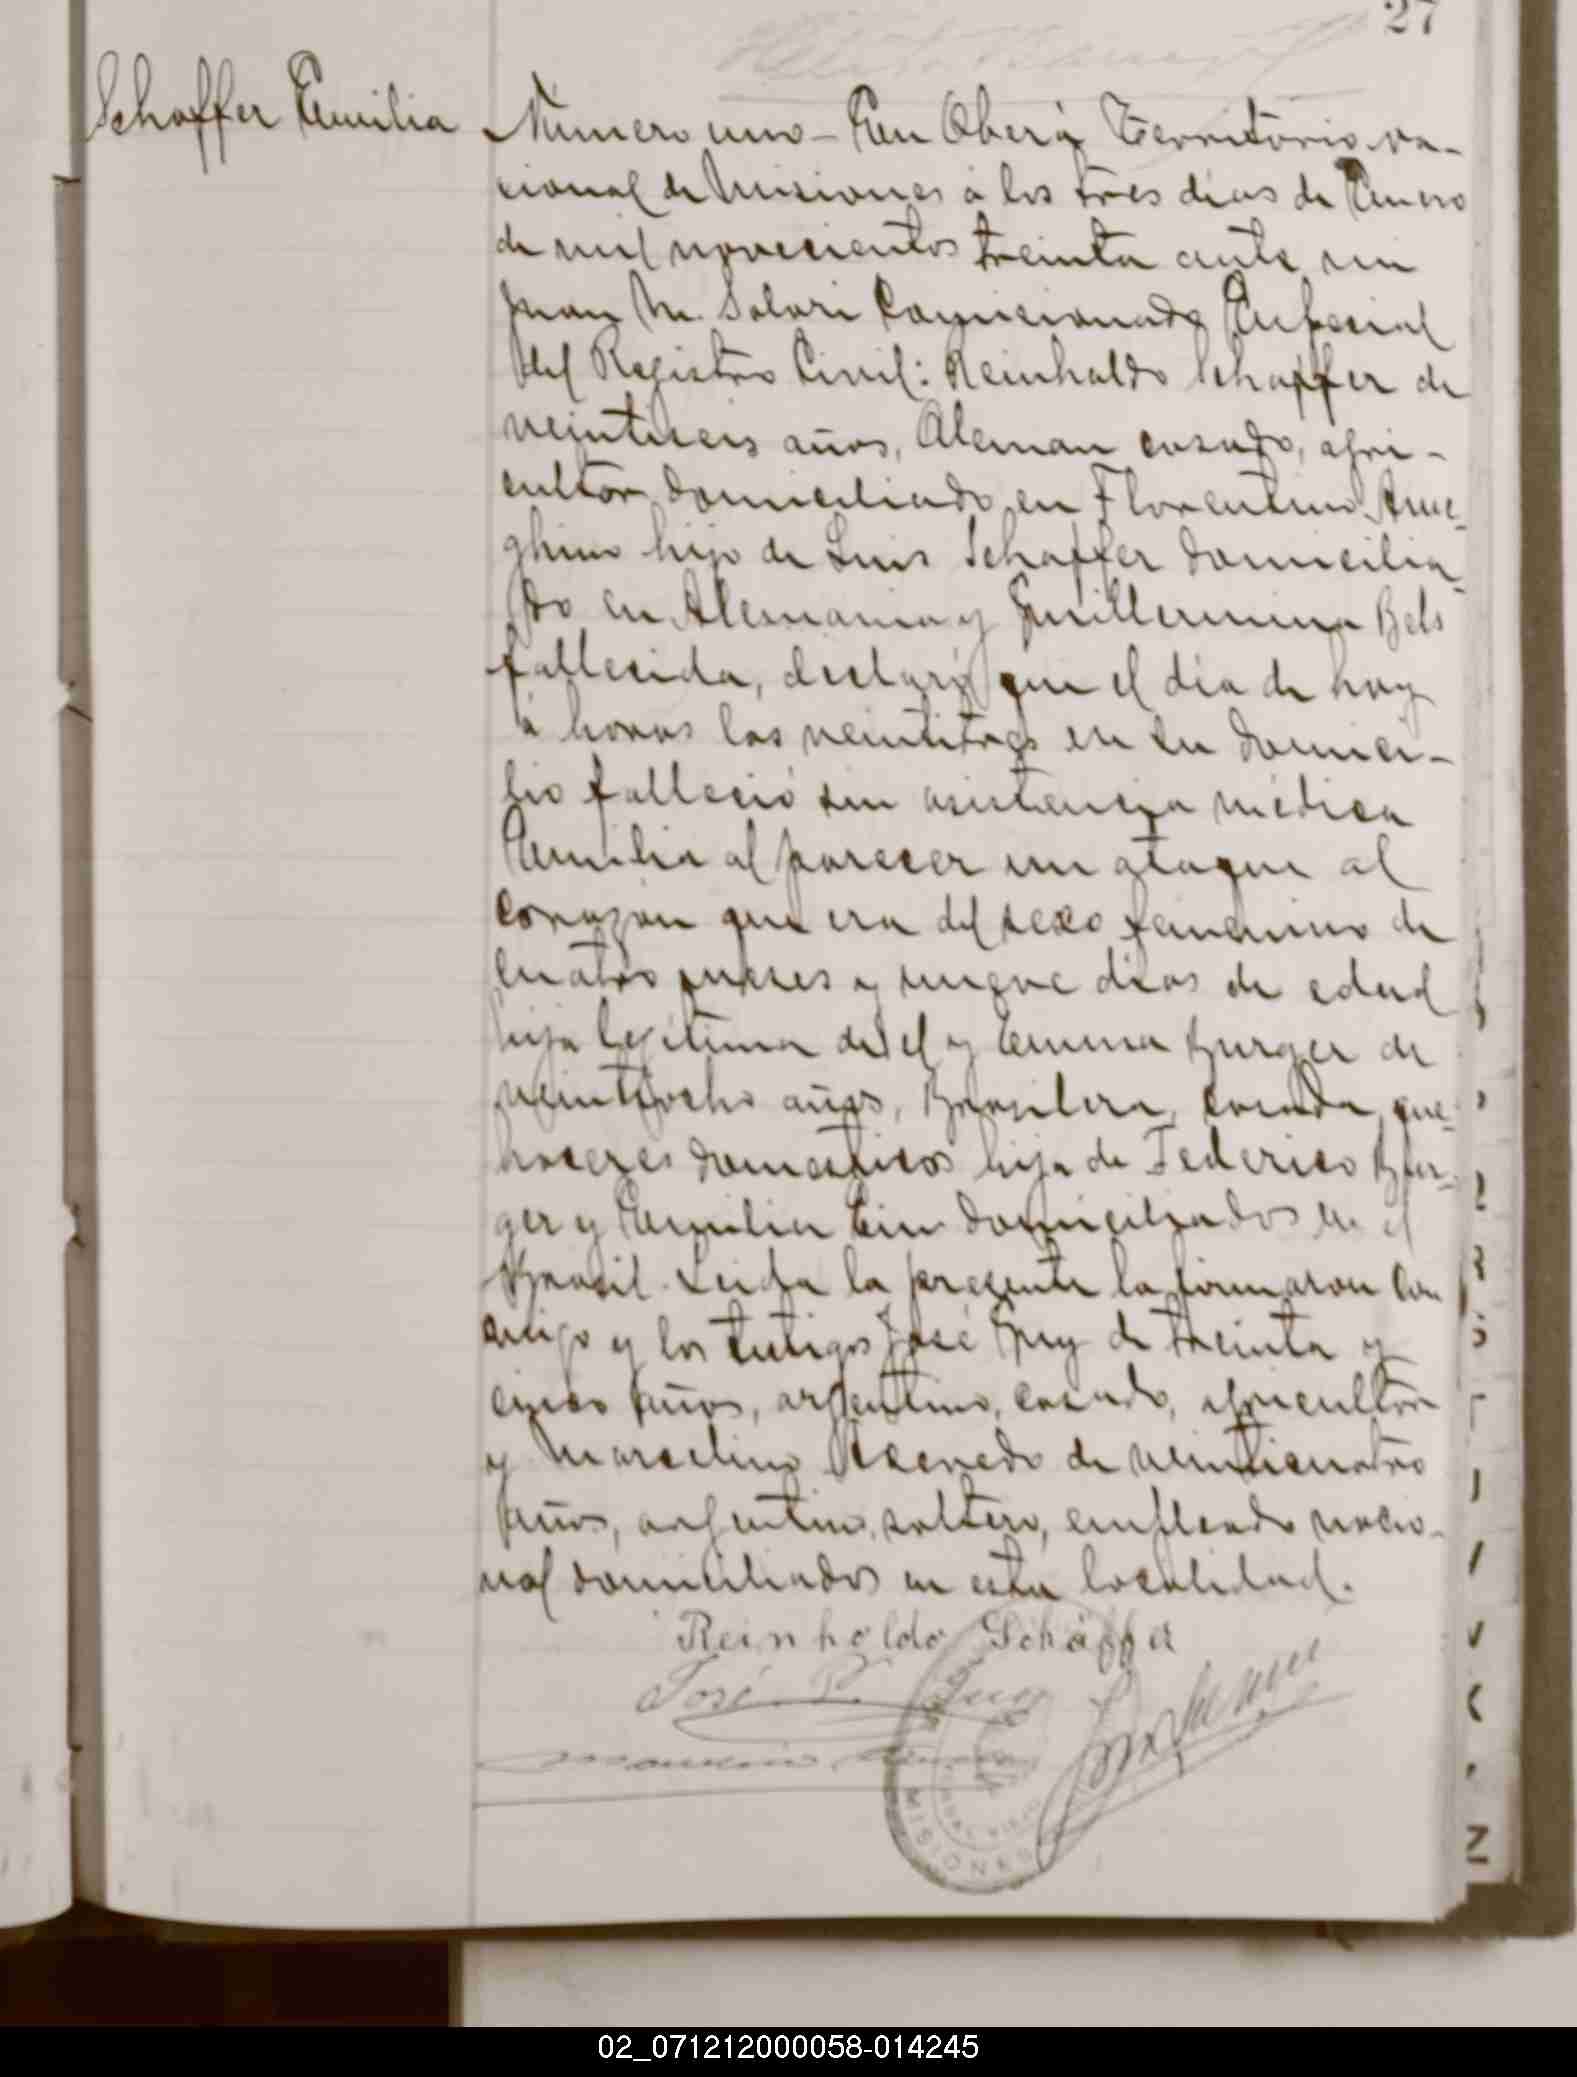 27
Schaffer Emilia
Número uno - En Oberá Territorio na-
cional de Misiones á los tres días de Enero
de mil novecientos treinta ante mi
Juan M. Solari Comicionado Especial
del Registro Civil: Reinholdo Schaffer de
veintiseis años, Aleman casado, agri-
cultor domiciliado en Florentino Ame-
ghino hijo de Luis Schaffer domicilia-
do en Alemania y Guillermina Bels
fallecida, declaró que el día de hoy
á horas las veintitres en su domici-
lio falleció sin asistencia médica
Emilia al parecer un ataque al
corazon que era del sexo femenino de
cuatro meses y nueve dias de edad
hija legitima de el y Emma Burger de
veintiocho años, Brasilera, casada, que-
haceres domesticos hija de Federico Bur-
ger y Emilia domiciliados en el
Brasil. Leida la presente la firmaron con
migo y los testigos José de treinta y
cinco años, argentino, casado, agricultor
y Marcelino Acevedo de veinticuatro
años, argentino, soltero, empleado nacio-
nal domiciliados en esta localidad.
Reinholdo Schäffer
José P.
MISIONES
02_071212000058-014245